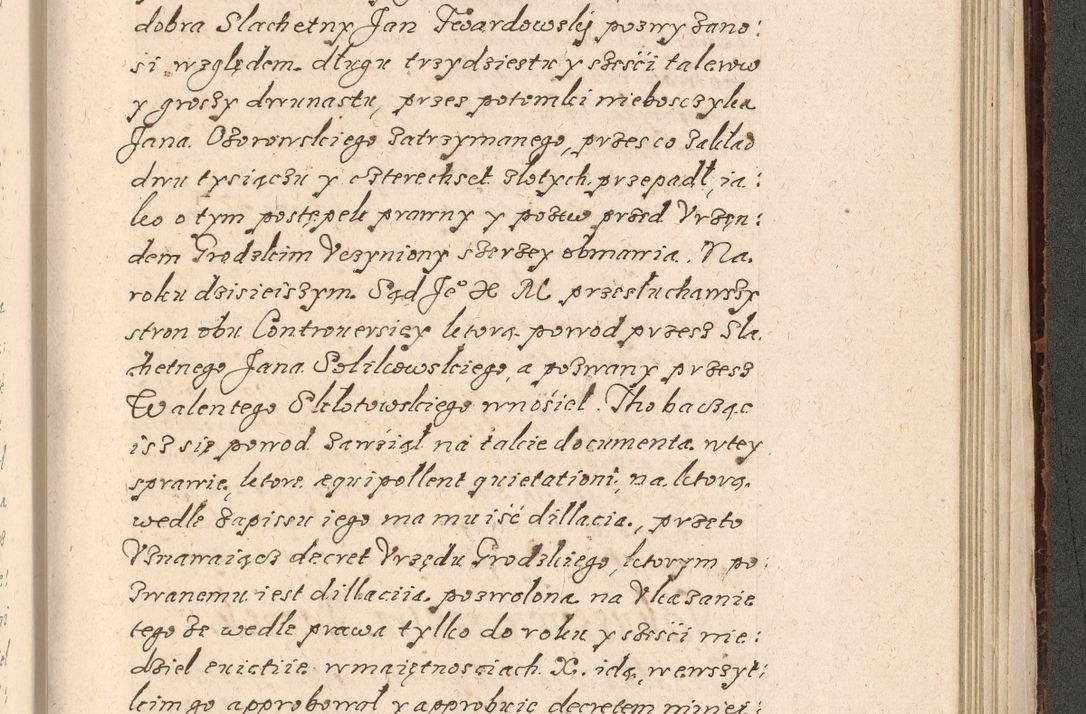 dobra Slachetny Jan Twardowsky pozwy zano:
si względem długu trzydziestu y sześći talerow
y groszy dwunastu, przes potomki nieboszczyka
Jana Ozorowskiego zatrzymanego, przes co zakład
dwu tysiączu y czterechset złotych przepadł, ia:
ko o tym postępek prawny y pozew przed Vrzęn:
dem Grodzkim Vczyniony szerzey obmawia. Na
roku dzisieiszym Sąd Je° X M przesłuchawszy
stron obu Controuersięy ktorą powod przesz Sla
chetnego Jana Solikowskiego, a pozwany przesz
Walentego Skłotowskiego wnośiel. Tho bacząc
isz się powod zawźiął na takie documenta wtey
sprawie, ktore æquipollent quietationi, na ktorą
wedle zapissu iego ma mu iść dillacia, przeto
Vznawaiącz decret Vrzędu Grodzkiego, ktorym po:
zwanemu iest dillaciia pozwolona na Vkazanie
tego że wedle prawa tylko do roku y sześći nie:
dziel euictiie wmaiętnosciach X. idą, wewszyt:
kim go approbował y approbuie decretem ninieị: